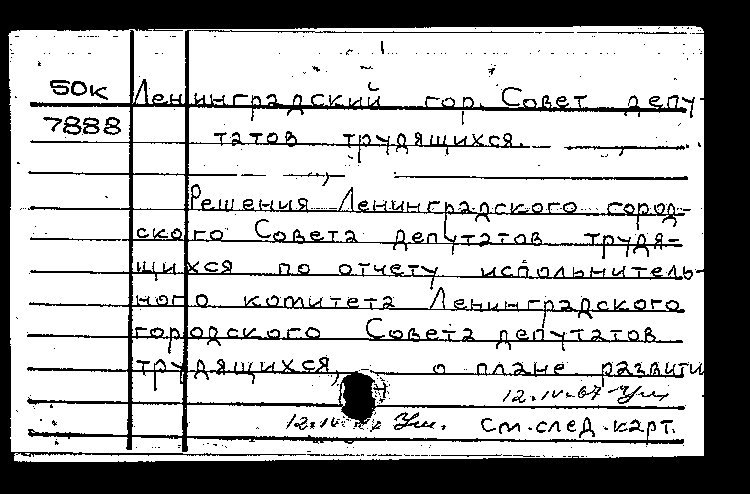 50к Ленинградский гор. Совет депу-
7888 татов трудящихся.
Решения Ленинградского город-
ского Совета депутатов трудя=
щихся по отчету испольнитель-
ного комитета Ленинградского
городского Совета депутатов
трудящихся, о плане развити
12.IV.67
см.след.карт.